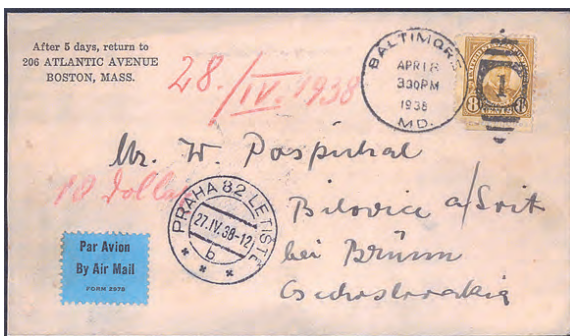 After 5 days, return to
206 ATLANTIC AVENUE
BOSTON, MASS.
28./IV. 1938
BALTIMORE
APR 18
330 PM
1938
MD.
8
1
8
Mr. W. Pospíchal
10 Dollar
PRAHA 82 LETIŠTĚ
27.IV.38-12
b
Bilovice a/Svit
bei Brünn
Czechoslovakia
Par Avion
By Air Mail
FORM 2978